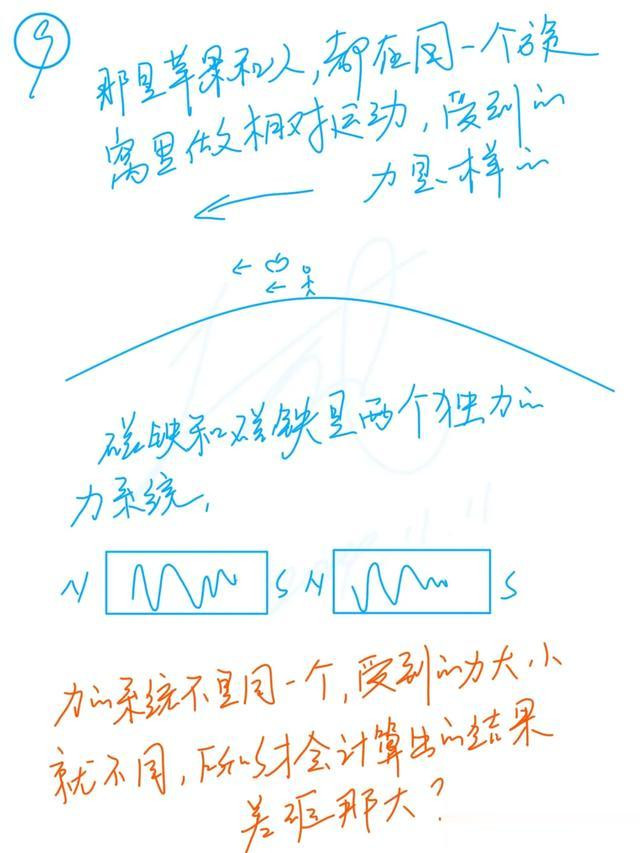 9
那是苹果和人，都在同一个旋
窝里做相对运动，受到的
力是一样的
磁铁和磁铁是两个独立的
力系统，
N S N S
力的系统不是同一个，受到的力大小
就不同，所以才会计算出的结果
差距那大？